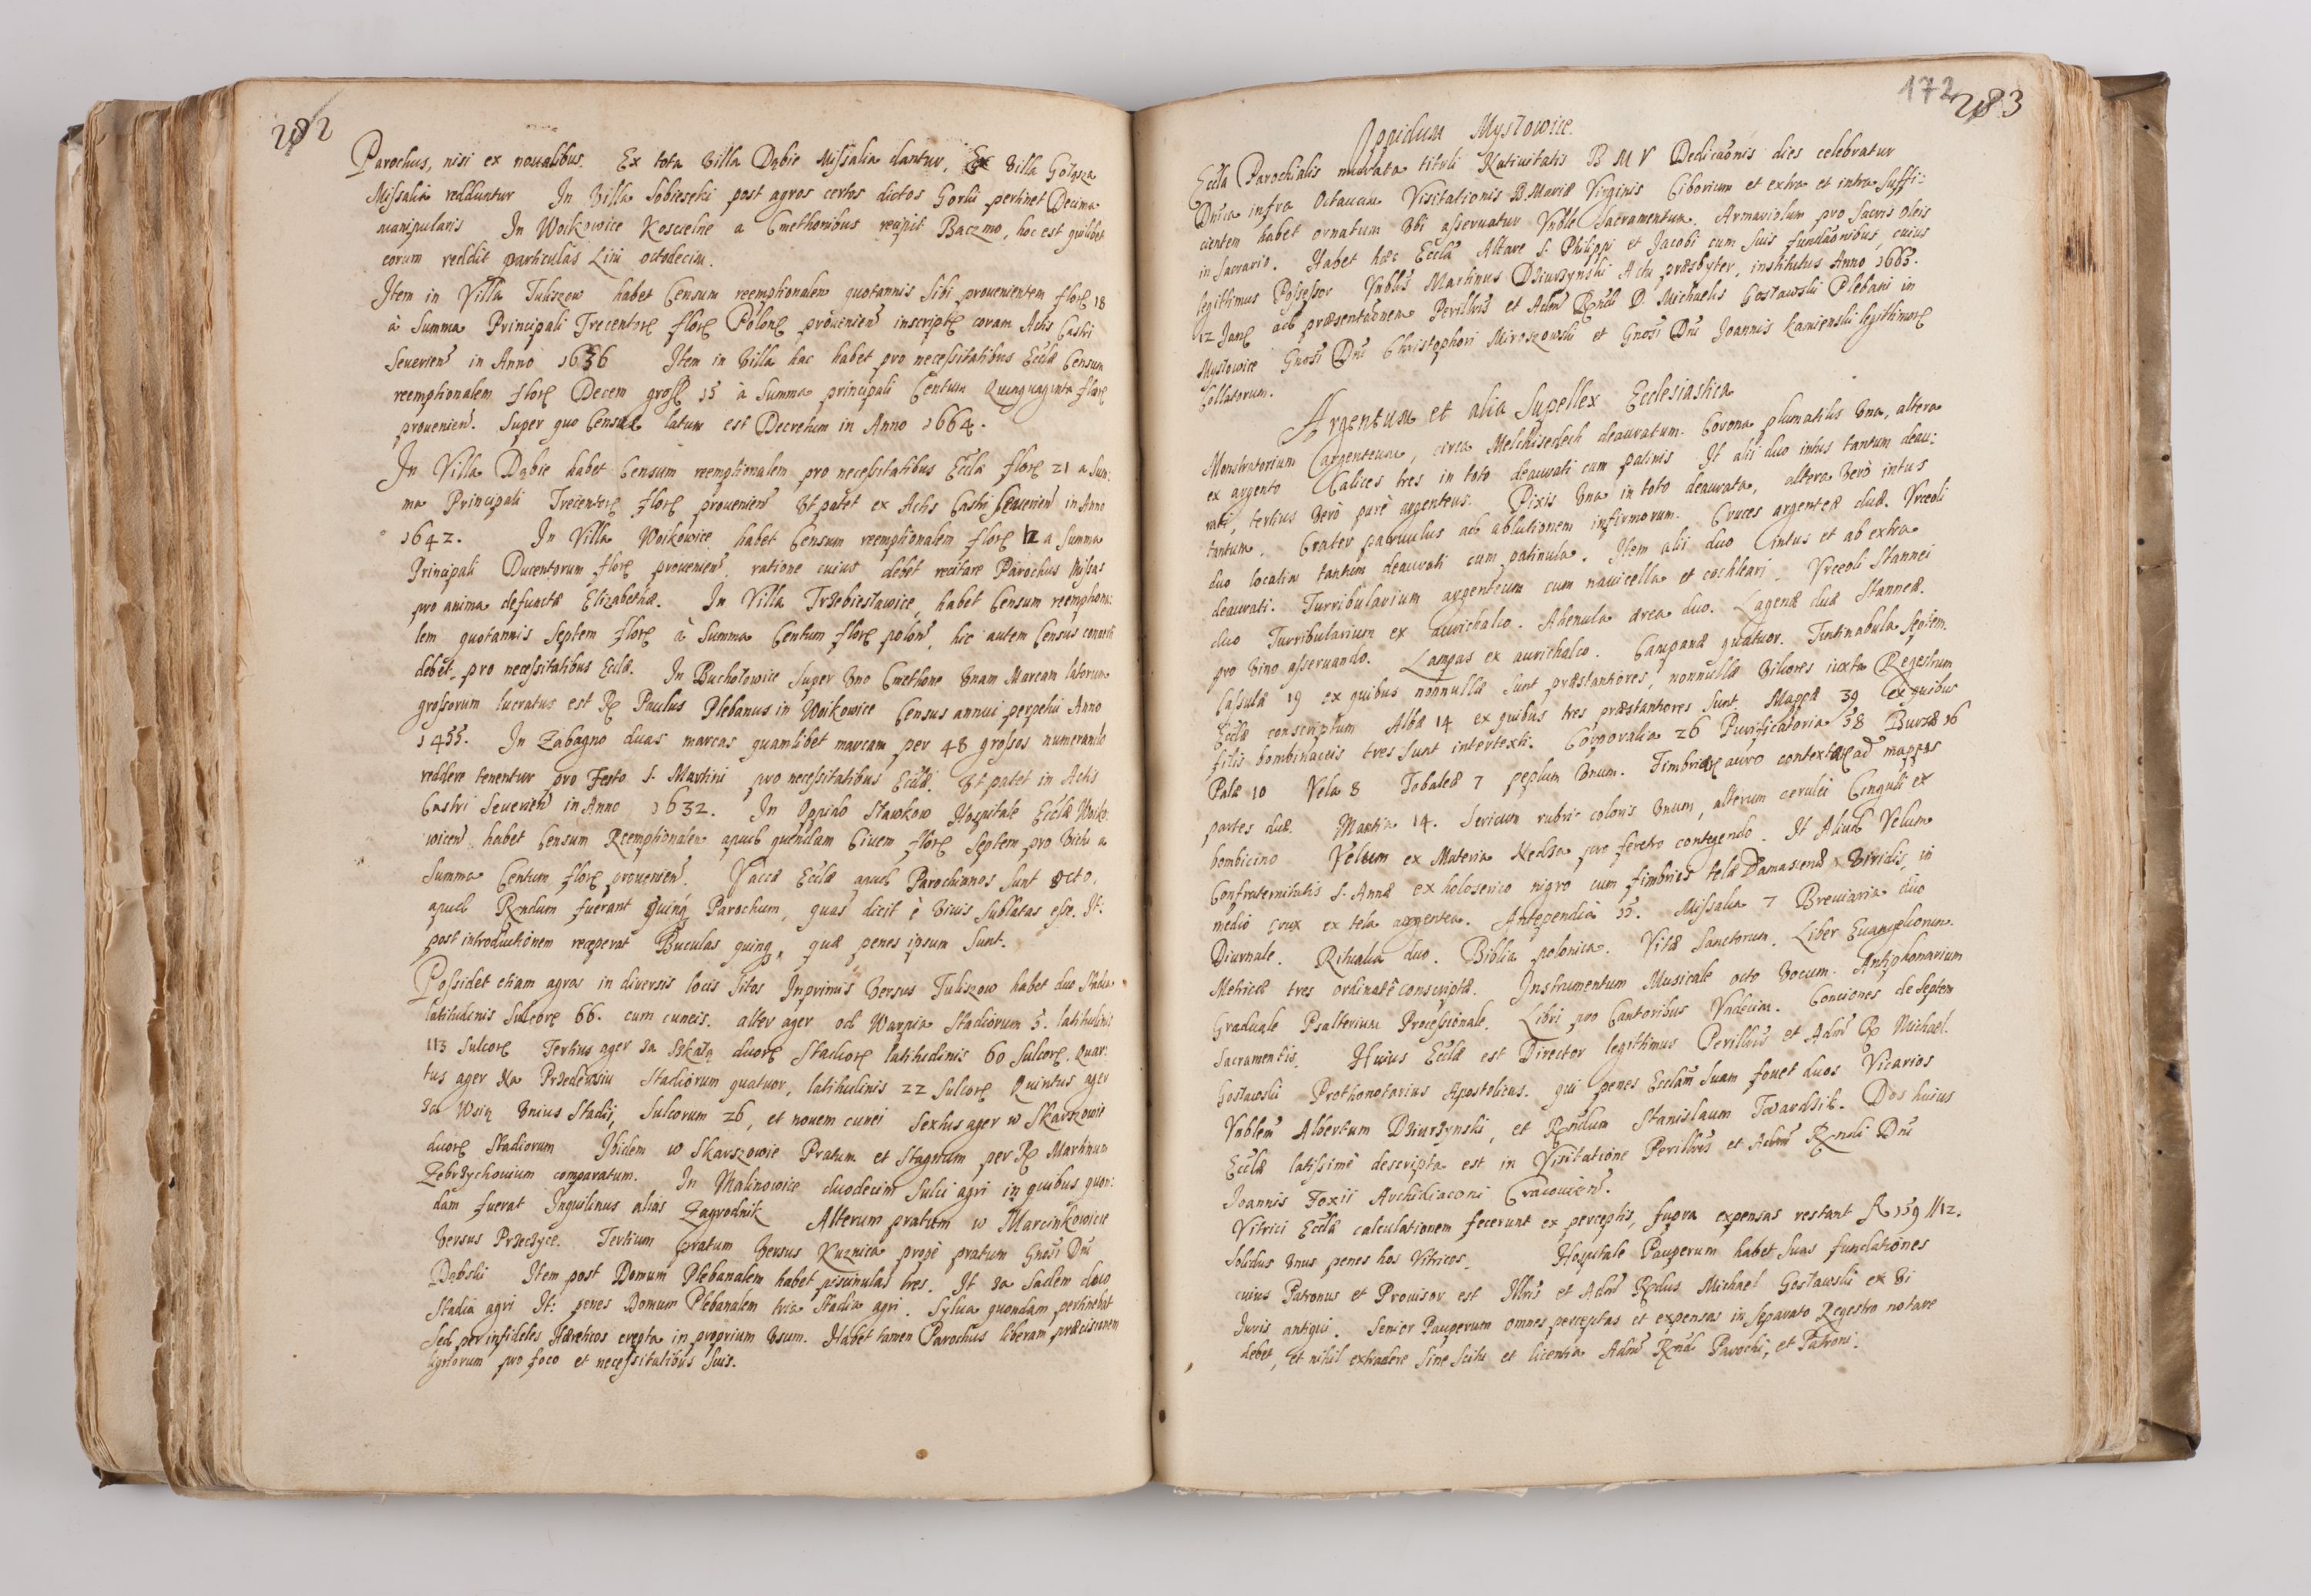 282
Parochus, nisi ex noualibus. Ex tota Villa Dąbie Missalia dantur, Ex Villa Goląsza
Missalia redduntur In Villa Sobieseki post agros certos dictos Gorki pertinet Decima
manipularis In Woikowice Koscielne a Cmethonibus recipit Baczmo, hoc est quilibet
eorum reddit particulas Lini octodecim.
Item in Villa Tuliszow habet Censum reemptionalem quotannis sibi prouenientem flor: 18
à Summa Principali Trecentor: flor: Polon: prouenien: inscript: coram Actis Castri
Seuerien: in Anno 1636 Item in Villa hac habet pro necessitatibus Eccłæ Censum
reemptionalem flor: Decem gross: 15 à Summa principali Centum Quinquaginta flor:
prouenien: Super quo Censu latum est Decretum in Anno 1664.
In Villa Dąbie habet Censum reemptionalem pro necessitatibus Eccłæ flor: 21 a Sum:
ma Principali Trecentor: flor: prouenien: Vt patet ex Actis Castri Seuerien: in Anno
1642. In Villa Woikowice habet Censum reemptionalem flor: 12 a Summa
Principali Ducentorum flor: prouenien: ratione cuius debet recitare Parochus Missas
pro anima defunctæ Elizabethæ. In Villa Trzebiesławice, habet Censum reemptiona:
lem quotannis Septem flor: à Summa Centum flor: polon:, hic autem Census conuerti
debet pro necessitatibus Eccłæ. In Buchołowice Super Vno Cmethone Vnam Marcam latorum
grossorum lucratus est R. Paulus Plebanus in Woikowice Census annui perpetui Anno
1455. In Zabagno duas marcas quamlibet marcam per 48 grossos numerando
reddere tenentur pro Festo S. Martini pro necessitatibus Eccłæ. Vt patet in Actis
Castri Seuerien: in Anno 1632. In Oppido Sławkow Hospitale Eccłæ Woiko:
wicen: habet Censum Reemptionalem apud quendam Ciuem flor: Septem pro Victu a
Summa Centum flor: prouenien: Vaccæ Eccłæ apud Parochianos Sunt octo,
apud Rndum fuerant quinq; Parochum, quas dicit è Viuis Sublatas esse. It:
post introductionem receperat Buculas quinq; quæ penes ipsum Sunt.
Possidet etiam agros in diuersis locis Sitos Inprimis Versus Tuliszow habet duo Stadia
latitudinis Sulcor: 66. cum cuneis. alter ager od Warpia Stadiorum 5. latitudinis
113 Sulcor: Tertius ager za Skałą duor: Stadior: latitudinis 60 Sulcor: Quar:
tus ager Na Stadiorum quatuor, latitudinis 22 Sulcor: Quintus ager
za Wsią Vnius Stadij, Sulcorum 26, et nouem cunei Sextus ager w Skarszowie
duor: Stadiorum Ibidem w Skarszowie Pratum et Stagnum per R. Martinum
Zebrzychouium comparatum. In Malinowice duodecim Sulci agri in quibus quon:
dam fuerat Inquilinus aliàs Zagrodnik Alterum pratum w Marcinkowicie
Versus Przeczyce. Tertium pratum Versus Kuznica propè pratum Gnosi Dni
Dąbski Item post Domum Plebanalem habet piscinulas tres. It za Sadem duo
Stadia agri It: penes Domum Plebanalem tria Stadia agri. Sylua quondam pertinebat
Sed per infideles Hæreticos erepta in proprium Vsum. Habet tamen Parochus liberam præcisionem
lignorum pro foco et necessitatibus Suis.
172
283
Oppidum Mysłowice.
Eccła Parochialis murata tituli Natiuitatis B M V Dedicaõnis dies celebratur
Dnica infra Octauam Visitationis B. Mariæ Virginis Ciborium et extra et intra Suffi:
cientem habet ornatum Vbi asseruatur Vnble Sacramentum. Armariolum pro Sacris Oleis
in Sacrario. Habet hæc Eccła Altare S. Philippi et Jacobi cum Suis fundaõnibus, cuius
legittimus Possessor Vnblis Martinus Dziurzynski Actu præsbyter, institutus Anno 1663.
12 Jan: ad præsentaõnem Perillris et Adm Rndi D. Michaelis Gosławski Plebani in
Mysłowice Gnosi Dni Christophori Miroszowski et Gnosi Dni Joannis Kamienski legittimor:
Collatorum.
Argentum et alia Supellex Ecclesiastica
Monstratorium argenteum, circa Melchisedech deauratum. Corona plumatilis Vna, altera
ex argento Calices tres in toto deaurati cum patinis It alii duo intus tantum deau:
rati, tertius Verò purè argenteus. Pixis Vna in toto deaurata, altera Verò intus
tantum. Crater paruulus ad ablutionem infirmorum. Cruces argenteæ duæ. Vrceoli
duo localiu tantùm deaurati cum patinula. Item alii duo intus et ab extra
deaurati. Turribularium argenteum cum nauicella et cochleari. Vrceoli Stannei
duo Turribularium ex aurichalco. Ahenula ærea duo. Lagenæ duæ Stanneæ
pro Vino asseruando. Lampas ex aurichalco. Campanæ quatuor. Tintinabula Septem.
Casulæ 19 ex quibus nonnullæ Sunt præstantiores, nonnullæ Viliores iuxta Regestrum
Eccłæ conscriptum Albæ 14 ex quibus tres præstantiores Sunt. Mappæ 39 ex quibus
filis bombinaceis tres Sunt intertexti. Corporalia 26 Purificatoria 38 Bursæ 16
Palæ 10 Vela 8 Tobaleæ 7 peplum Vnum. Fimbriæ auro contextæ ad mappas
partes duæ. Mantia 14. Sericum rubri coloris Vnum, alterum cerulei Cinguli ex
bombicino Velum ex Materia Nedza pro feretro contegendo. It Aliud Velum
Confraternitatis S. Annæ ex holoserico nigro cum fimbriis telæ Damascenæ Viridis, in
medio crux ex tela argentea. Antependia 35. Missalia 7 Breuiaria duo
Diurnale. Ritualia duo. Biblia polonica. Vitæ Sanctorum. Liber Euangeliorum.
Metricæ tres ordinatè conscriptæ. Instrumentum Musicale octo Vocum. Antiphonarium
Graduale Psalterium Processionale. Libri pro Cantoribus Vndecim. Conciones de Septem
Sacramentis. Huius Eccłæ est Director legittimus Perillris et Adm R. Michael
Gosławski Prothonotarius Apostolicus. qui penes Eccłam Suam fouet duos Vicarios
Vnblem Albertum Dziurzynski, et Rndum Stanislaum Twardzik. Dos huius
Eccłæ latissimè descripta est in Visitatione Perillris et Adm Rndi Dni
Joannis Foxii Archidiaconi Cracouien:
Vitrici Eccłæ calculationem fecerunt ex perceptis, supra expensas restant fl 159//12.
Solidus Vnus penes hos Vitricos. Hospitale Pauperum habet Suas fundationes
cuius Patronus et Prouisor est Illris et Adm Rndus Michael Gosławski ex Vi
Iuris antiqui. Senior Pauperum omnes perceptas et expensas in Separato Regestro notare
debet, et nihil extradere Sine Scitu et licentia Adm Rnd Parochi, et Patroni.